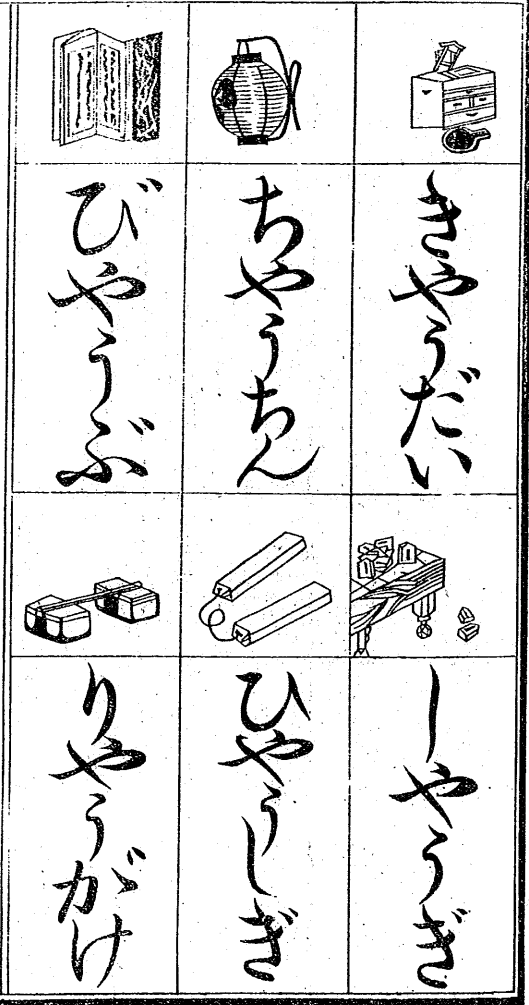 きやうだい
ちやうちん
びやうぶ
しやうぎ
ひやうしぎ
りやうがけ